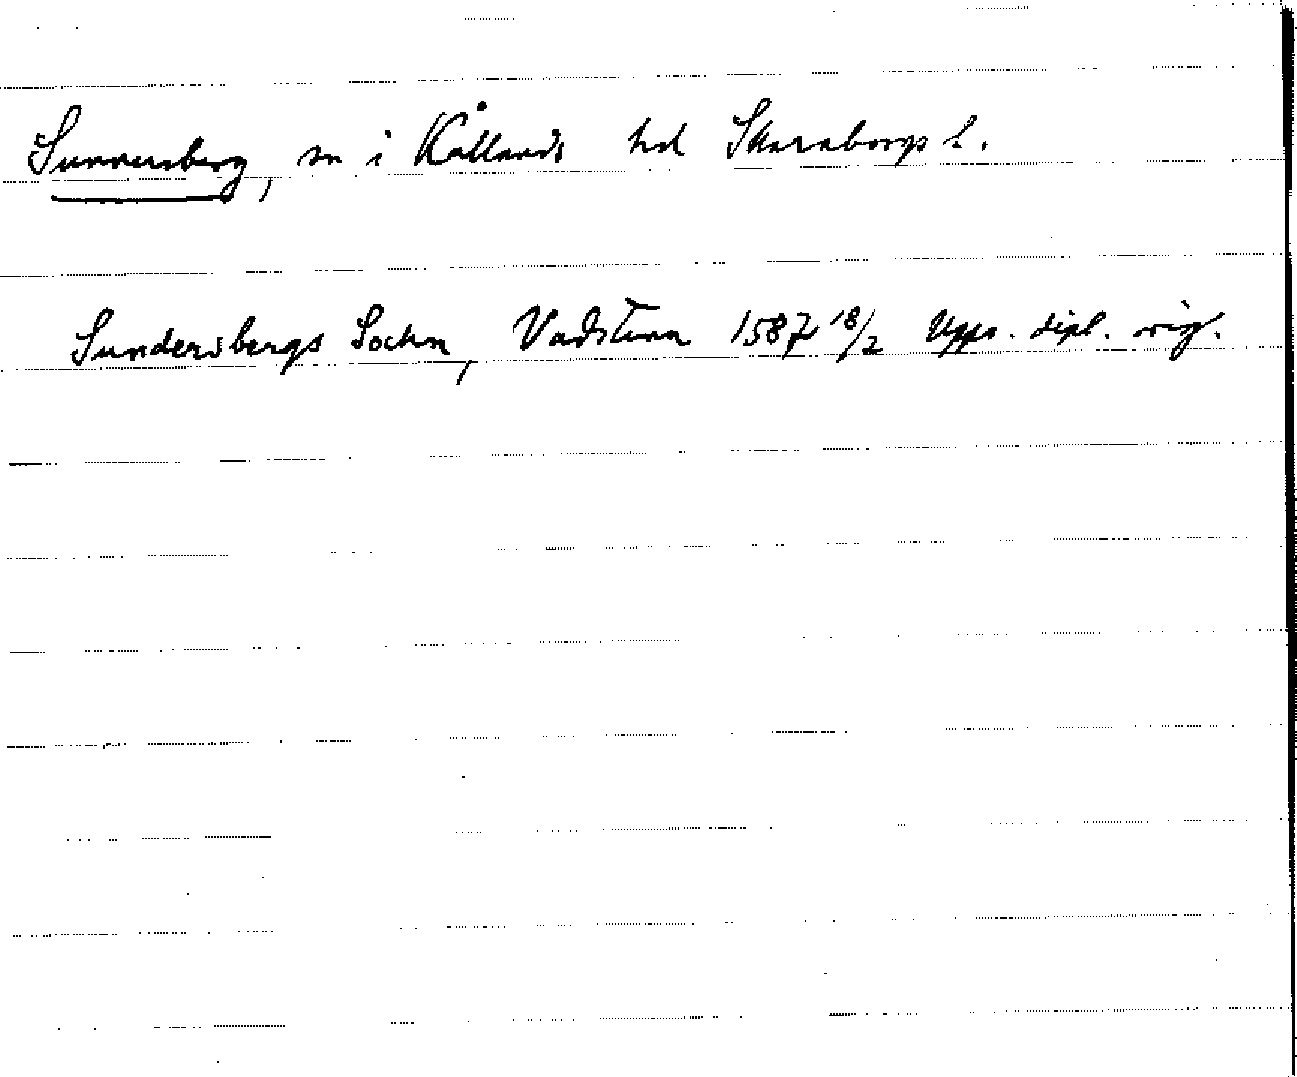 Sunnersberg, sn i Kållands hd Skaraborgs l.
Sundersbergs Sochn, Vadstena 1587 18/2 Upps. dipl. orig.